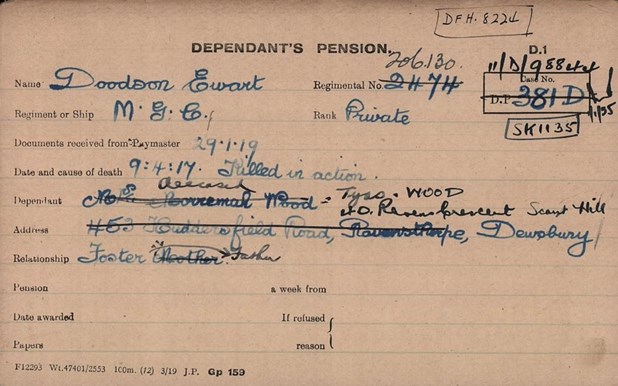 DFH. 8224
DEPENDANT'S PENSION.
D.1
206.130.
11/D/988
Name Doodson Ewart Regimental No. 2474
Case No.
D.P. 381D
1/35
Regiment or Ship M. G. C. Rank Private
SK1135
Documents received from Paymaster 29.1.19
Date and cause of death 9:4:17. Killed in action.
deceased
Dependant Mrs Wood = Tyso. WOOD
Ravens Crescent Scout Hill
Address 453 Huddersfield Road, Ravensthorpe, Dewsbury
Relationship Foster Mother Father
Pension a week from
Date awarded If refused
Papers reason
F12293 Wt.47401/2553 100m. (12) 3/19 J.P. Gp 159